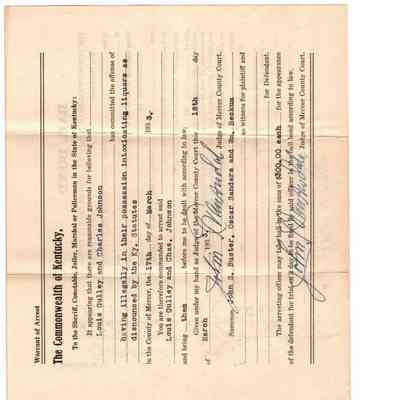 Warrant of Arrest
The Commonwealth of Kentucky,
To the Sheriff, Constable, Jailer, Marshal or Policeman in the State of Kentucky:
It appearing that there are reasonable grounds for believing that
Louis Gulley and Charles Johnson
has committed the offense of
having illegally in their possession intoxicating liquors as
dinounced by the Ky. Statutes
in the County of Mercer, the 17th day of March 193
You are therefore commanded to arrest said
Louis Gulley and Chas. Johnson
and bring them before me to be dealt with according to law.
Given under my hand as Judge of the Mercer County Court this 18th day
of March 193
Judge of Mercer County Court.
Summon John S. Buster, Oscar Sanders and
as witness for plaintiff and
for Defendant.
The arresting officer may take bail in the sum of $300.00 each for the appearance
of the defendant for trial
Judge of Mercer County Court.